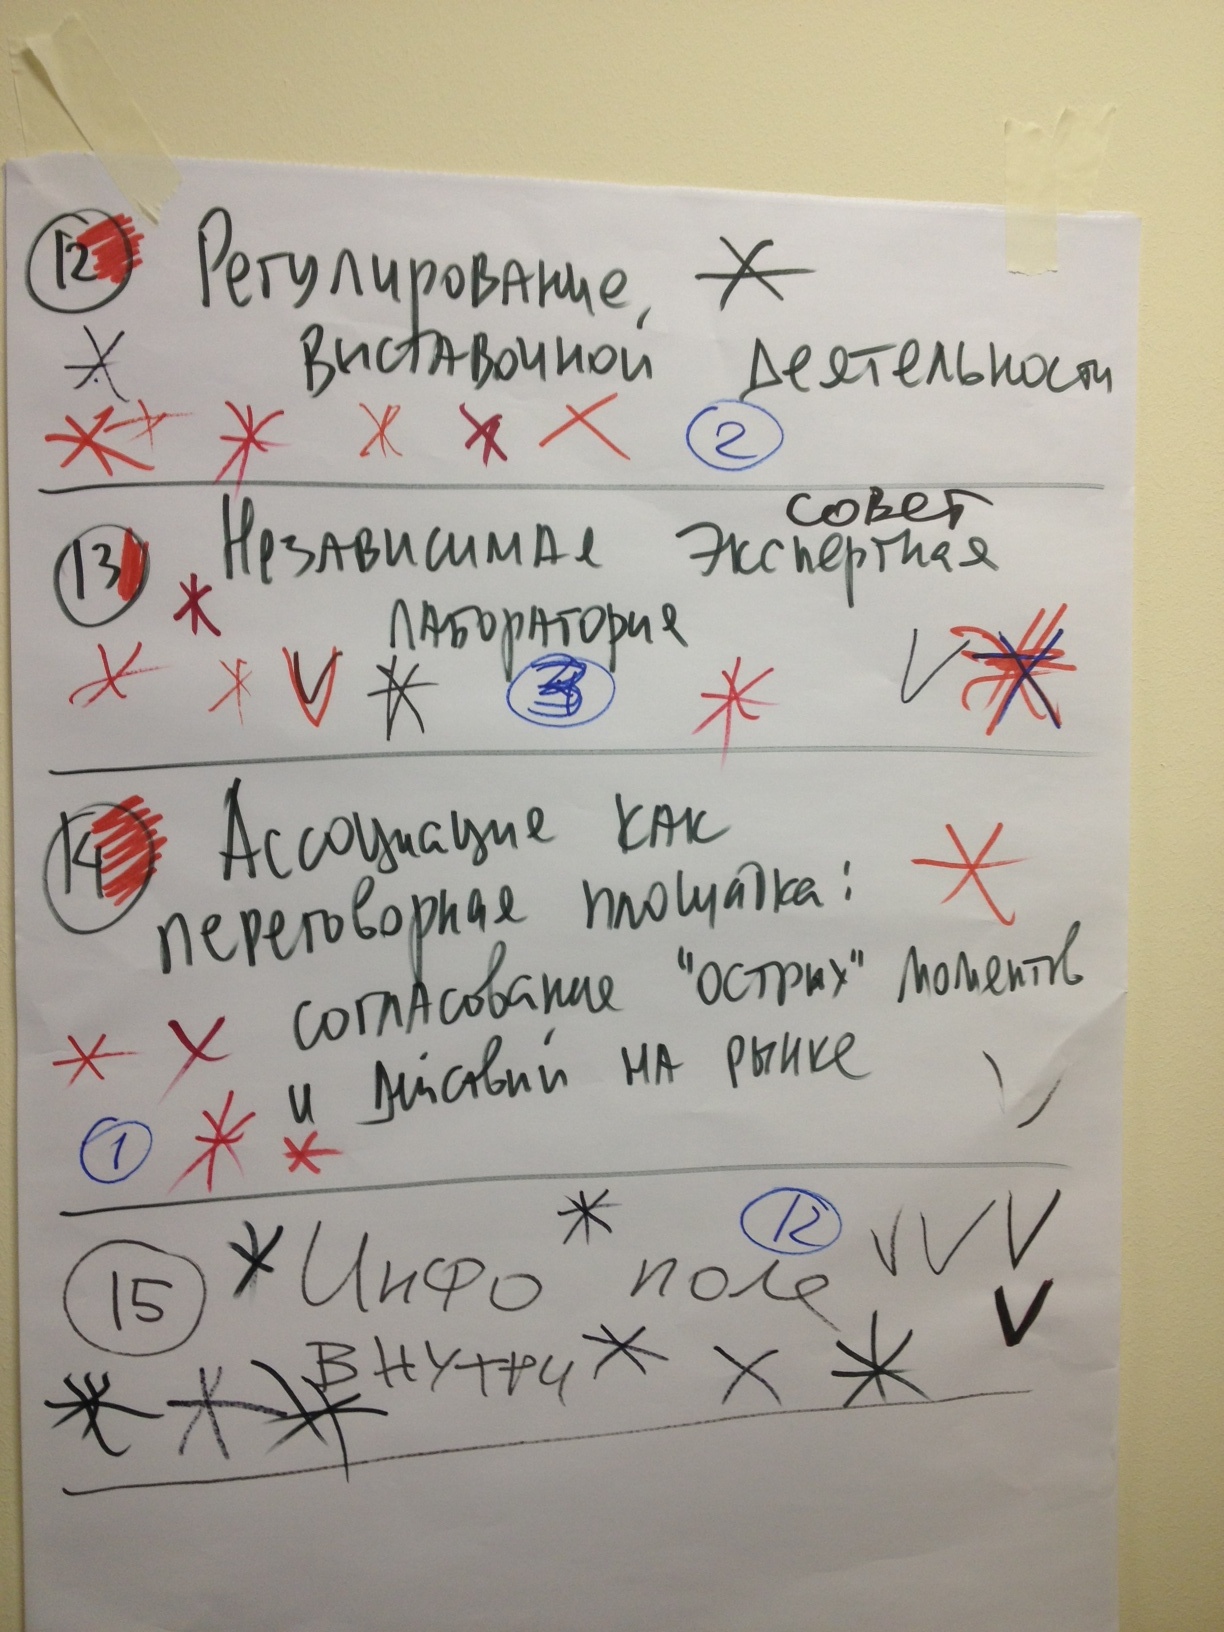 12 Регулирование,
виставочной деятельности
2
совет
13 Независимая Экспертная
лаборатория
3
14 Ассоциация как
переговорная площадка:
согласование "острых" моментв
и действий на рынке
1
12
15 Инфо поле
внутри